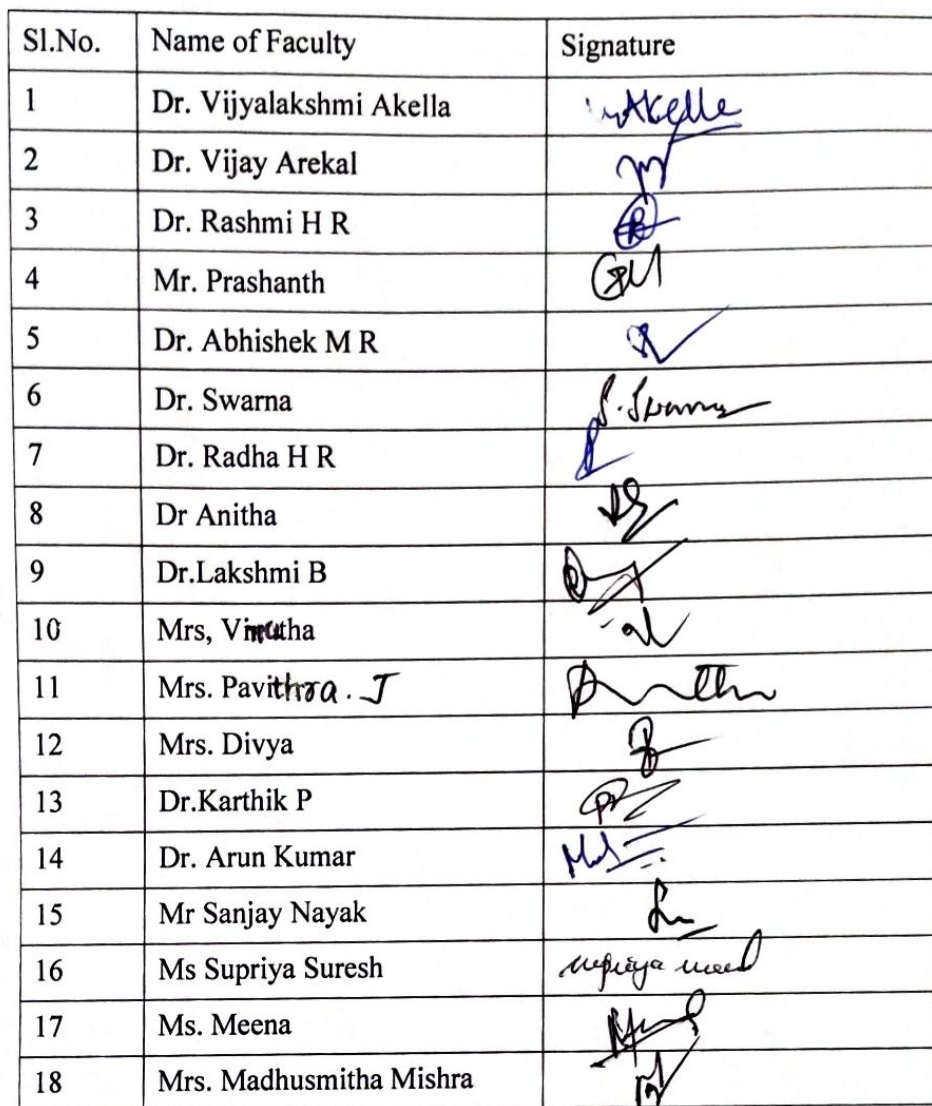 Sl.No. Name of Faculty Signature
1 Dr. Vijyalakshmi Akella Akella
2 Dr. Vijay Arekal
3 Dr. Rashmi H R
4 Mr. Prashanth
5 Dr. Abhishek M R
6 Dr. Swarna S. Swarna
7 Dr. Radha H R
8 Dr Anitha
9 Dr.Lakshmi B
10 Mrs,
11 Mrs. Pavithra. J
12 Mrs. Divya
13 Dr.Karthik P
14 Dr. Arun Kumar
15 Mr Sanjay Nayak
16 Ms Supriya Suresh
17 Ms. Meena
18 Mrs. Madhusmitha Mishra